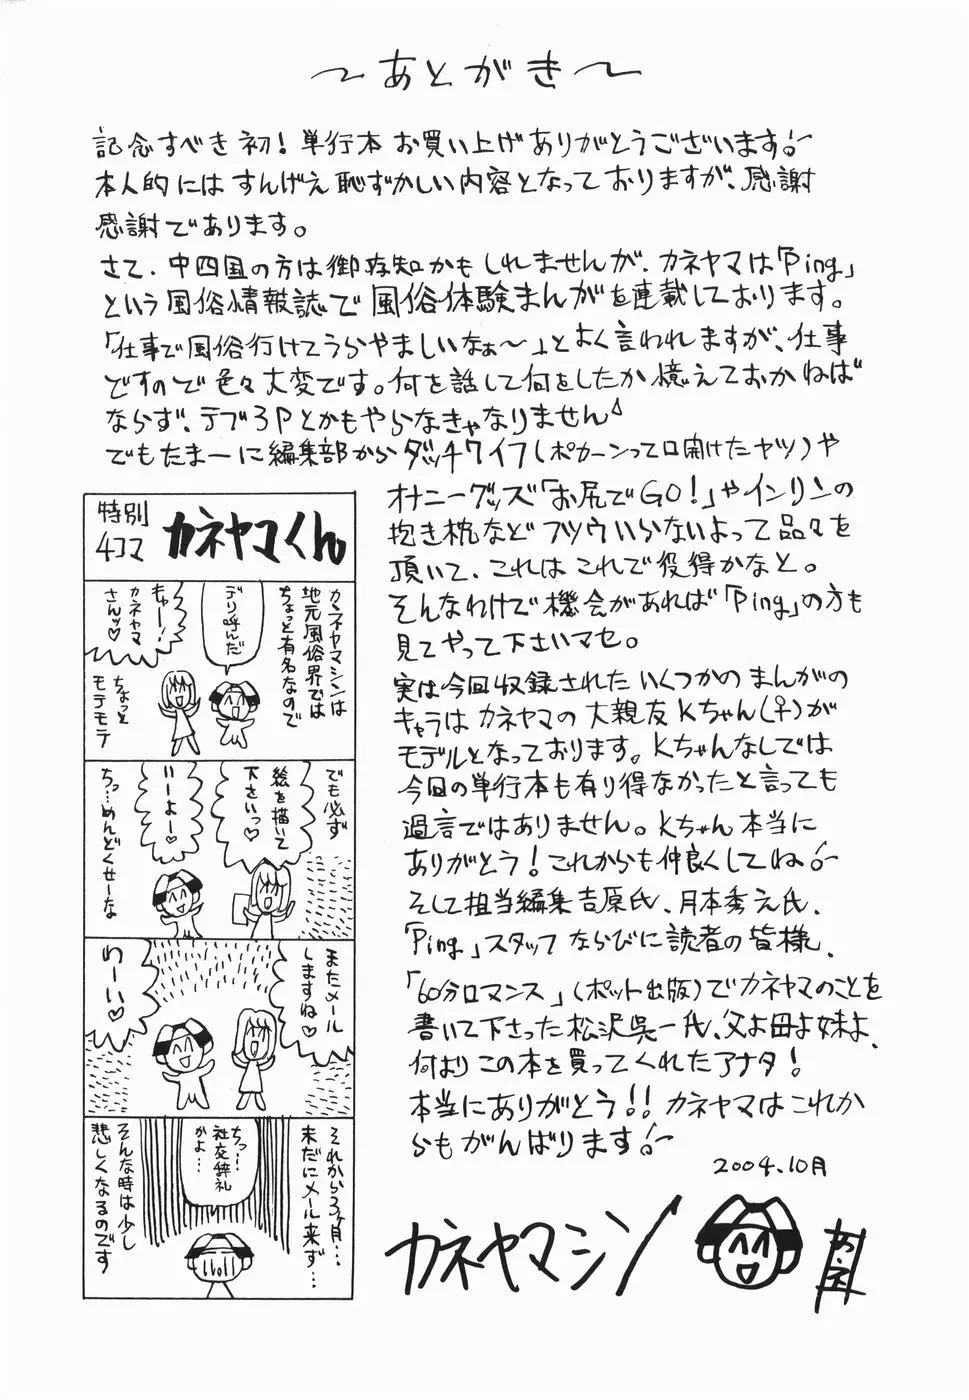 ～あとがき～
記念すべき初！単行本お買い上げありがとうございます！
本人的にはすんげえ恥ずかしい内容となっておりますが、感謝
感謝であります。
さて、中四国の方は御存知かもしれませんが、カネヤマは「Ping」
という風俗情報誌で風俗体験まんがを連載しております。
「仕事で風俗行けてうらやましいなぁ〜」とよく言われますが、仕事
ですので色々大変です。何を話して何をしたか憶えておかねば
ならず、デブ3Pとかもやらなきゃなりません
でもたまーに編集部からダッチワイフ(ポカーンって口開けたヤツ)や
オナニーグッズ「お尻でGO！」やインリンの
抱き枕などフツウいらないよって品々を
頂いて、これはこれで役得かなと。
そんなわけで機会があれば「Ping」の方も
見てやって下さいマセ。
実は今回収録されたいくつかのまんがの
キャラはカネヤマの大親友Kちゃん(♀)が
モデルとなっております。Kちゃんなしでは
今回の単行本も有り得なかったと言っても
過言ではありません。Kちゃん本当に
ありがとう！これからも仲良くしてね！
そして担当編集吉原氏、月本秀之氏、
「Ping」スタッフならびに読者の皆様、
「60分ロマンス」(ポット出版)でカネヤマのことを
書いて下さった松沢呉一氏、父よ母よ妹よ、
何よりこの本を買ってくれたアナタ！
本当にありがとう！！カネヤマはこれか
らもがんばります！
2004.10月
カネヤマシン
特別
4コマ
カネヤマくん
カネヤマシンは
地元風俗界では
ちょっと有名なので
デリ呼んだ
きゃー！
カネヤマ
さんッ♡
ちょっと
モテモテ
でも必ず
絵を描いて
下さいっ♡
いーよー♡
ちっ…めんどくせーな
またメール
しますね♡
わーい♡
それから3ヶ月…
未だにメール来ず…
ちっ…
社交辞礼
かよ…
そんな時は少し
悲しくなるのです